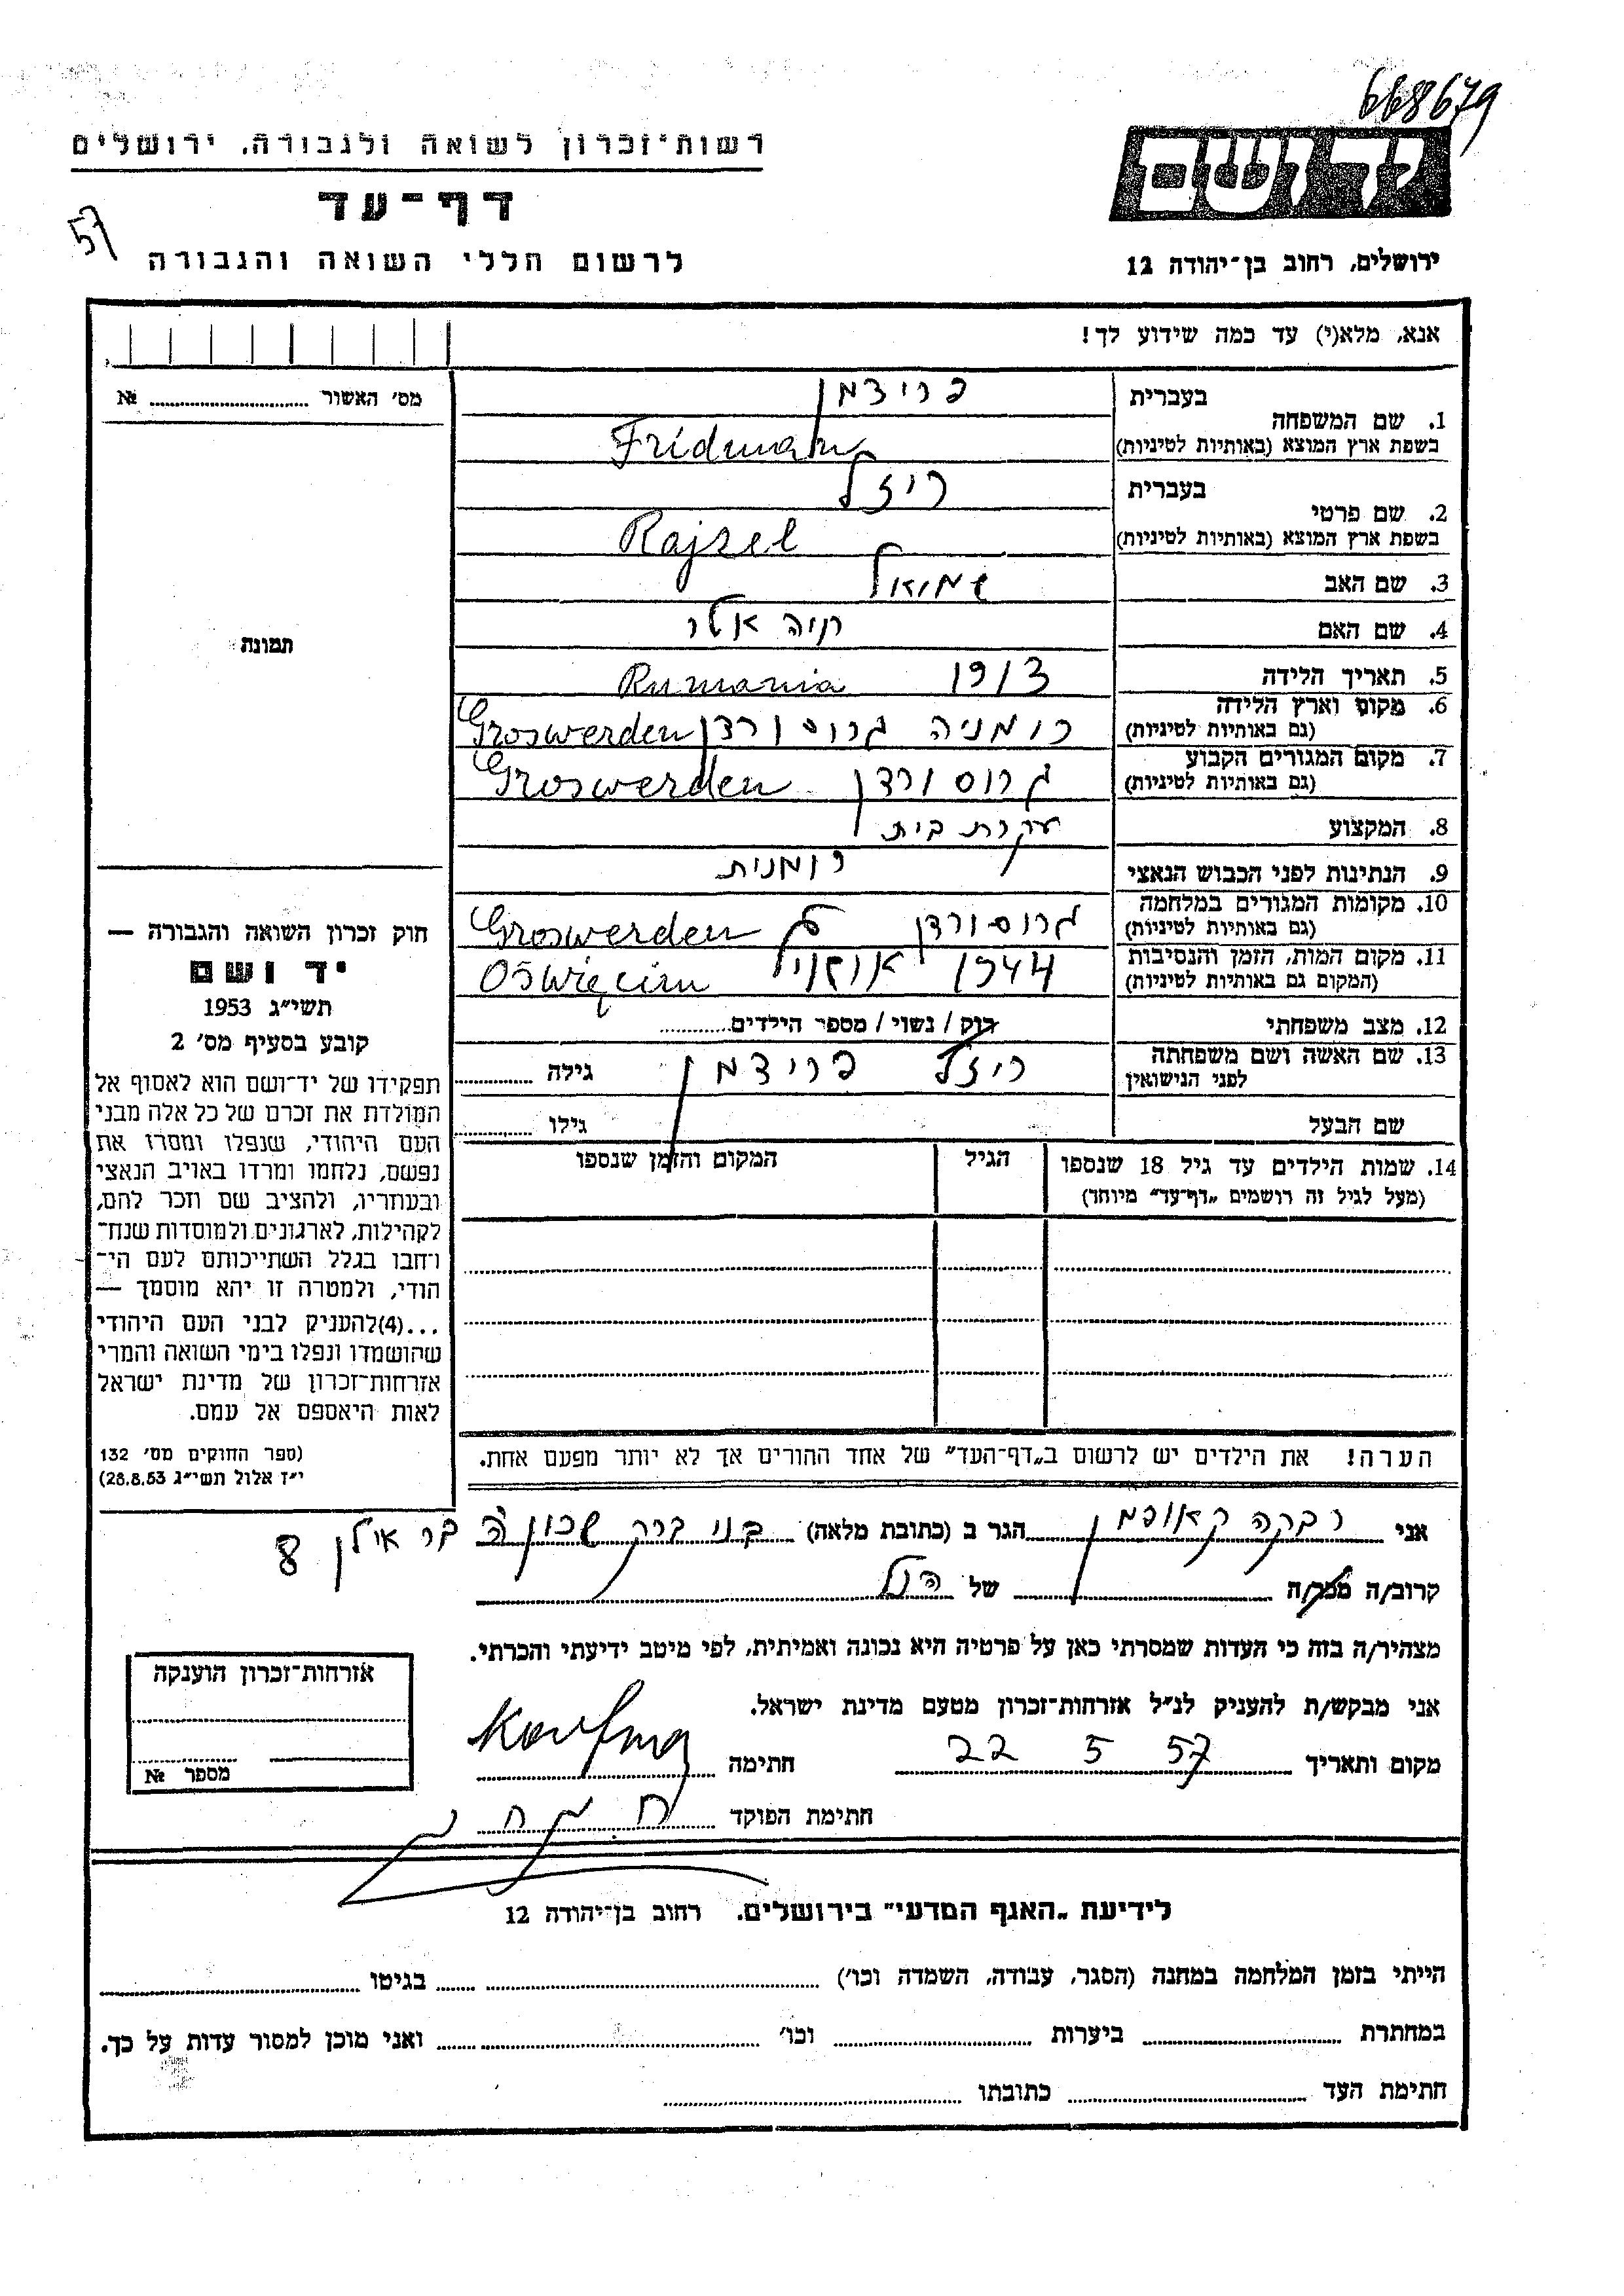 668679
רשות־זכרון לשואה ולגבורה, ירושלים
יד ושם
דף־עד
57
לרשום חללי השואה והגבורה
ירושלים, רחוב בן־יהודה 12
אנא, מלא(י) עד כמה שידוע לך!
מס׳ האשור № 
תמונה
1. שם המשפחה
בעברית פרידמן
בשפת ארץ המוצא (באותיות לטיניות) Fridman
2. שם פרטי
בעברית ריזל
בשפת ארץ המוצא (באותיות לטיניות) Rajzel
3. שם האב שמואל
4. שם האם חיה אטל
5. תאריך הלידה 1913 Rumania
6. מקום וארץ הלידה
(גם באותיות לטיניות) רומניה גרוסורדן Groswerden
7. מקום המגורים הקבוע
(גם באותיות לטיניות) גרוסורדן Groswerden
8. המקצוע עקרת בית
9. הנתינות לפני הכבוש הנאצי רומנית
10. מקומות המגורים במלחמה
(גם באותיות לטיניות) גרוסורדן Groswerden
11. מקום המות, הזמן והנסיבות
(המקום גם באותיות לטיניות) 1944 Oświęcim
12. מצב משפחתי רוק / נשוי / מספר הילדים
13. שם האשה ושם משפחתה
לפני הנישואין ריזל פרידמן גילה
שם הבעל גילו
14. שמות הילדים עד גיל 18 שנספו הגיל המקום והזמן שנספו
(מעל לגיל זה רושמים „דף־עד״ מיוחד)
הערה! את הילדים יש לרשום ב„דף־העד״ של אחד ההורים אך לא יותר מפעם אחת.
חוק זכרון השואה והגבורה —
יד ושם
תשי״ג 1953
קובע בסעיף מס׳ 2
תפקידו של יד־ושם הוא לאסוף אל
המולדת את זכרם של כל אלה מבני
העם היהודי, שנפלו ומסרו את
נפשם, נלחמו ומרדו באויב הנאצי
ובעוזריו, ולהציב שם וזכר להם,
לקהילות, לארגונים ולמוסדות שנח־
רבו בגלל השתייכותם לעם הי־
הודי, ולמטרה זו יהא מוסמך —
...(4)להעניק לבני העם היהודי
שהושמדו ונפלו בימי השואה והמרי
אזרחות־זכרון של מדינת ישראל
לאות היאספם אל עמם.
(ספר החוקים מס׳ 132
י״ז אלול תשי״ג 28.8.53)
אני רבקה קאופמן הגר ב (כתובת מלאה) בני ברק שכון ה׳ בר אילן 8
קרוב/ה מכר/ה של הנ״ל
מצהיר/ה בזה כי העדות שמסרתי כאן על פרטיה היא נכונה ואמיתית, לפי מיטב ידיעתי והכרתי.
אני מבקש/ת להעניק לנ״ל אזרחות־זכרון מטעם מדינת ישראל.
מקום ותאריך 22 5 57 חתימה Kaufman
חתימת הפוקד
אזרחות־זכרון הוענקה
מספר №
לידיעת „האגף המדעי״ בירושלים, רחוב בן־יהודה 12
הייתי בזמן המלחמה במחנה (הסגר, עבודה, השמדה וכו׳) בגיטו
במחתרת ביערות וכו׳ ואני מוכן למסור עדות על כך.
חתימת העד כתובתו